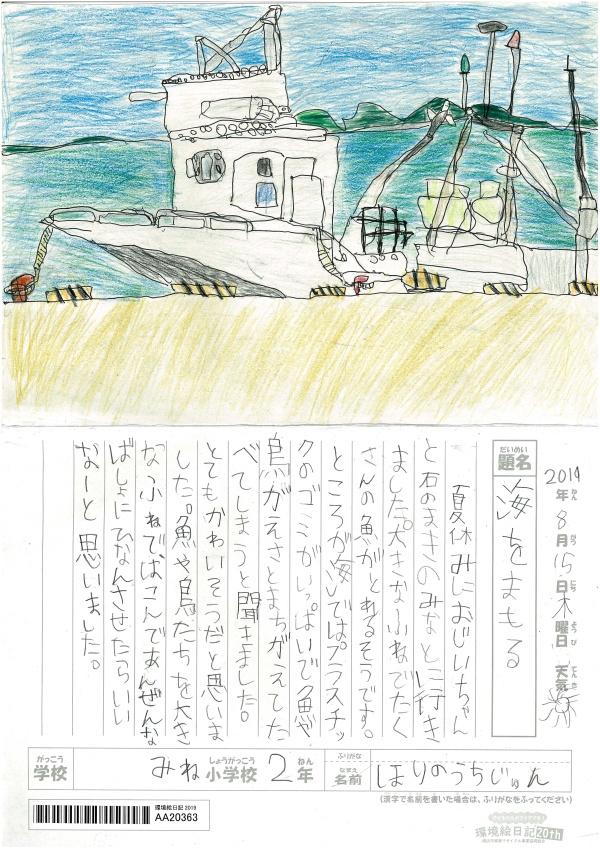 2019年8月15日木曜日 天気
ねん がつ にち ようび てんき
だいめい
題名
海をまもる
夏休みにおじいちゃん
と石のまきのみなとに行き
ました。大きなふねでたく
さんの魚がとれるそうです。
ところが海ではプラスチッ
クのゴミがいっぱいで魚や
鳥がえさとまちがえてた
べてしまうと聞きました。
とてもかわいそうだと思いま
した。魚や鳥たちを大き
なふねではこんであんぜんな
ばしょにひなんさせたらいい
なーと思いました。
がっこう
学校
みね小学校2年
しょうがっこう ねん
ふりがな
なまえ
名前
ほりのうちじゅん
(漢字で名前を書いた場合は、ふりがなをふってください)
環境絵日記2019
AA20363
環境絵日記20th